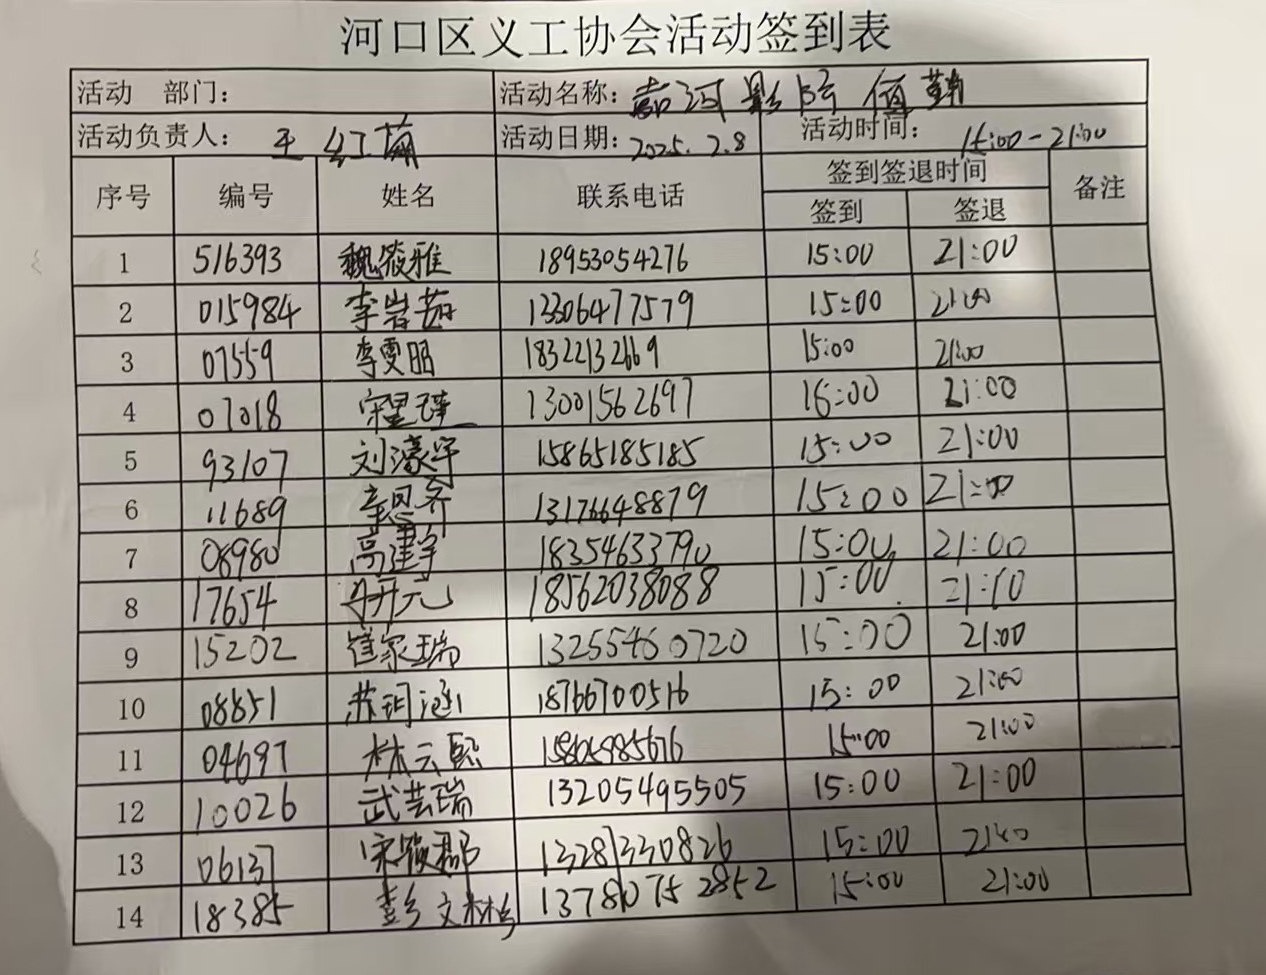 河口区义工协会活动签到表
活动 部门： 活动名称： 黄河影院 值勤
活动负责人： 王红菊 活动日期： 2025.2.8 活动时间： 15:00-21:00
序号 编号 姓名 联系电话 签到签退时间 备注
签到 签退
1 516393 魏筱雅 18953054276 15:00 21:00
2 015984 李岩茹 13306477579 15:00 21:00
3 07559 李雯昭 18322132669 15:00 21:00
4 07018 宋星 13001562697 15:00 21:00
5 93107 刘濠宇 15865185185 15:00 21:00
6 11689 辛恩齐 13176648879 15:00 21:00
7 08980 高建宇 18354633790 15:00 21:00
8 17654 开元 18562038088 15:00 21:00
9 15202 崔家瑞 13255460720 15:00 21:00
10 08851 苏玥涵 18766700516 15:00 21:00
11 04697 林云熙 15:00 21:00
12 10026 武芸瑞 13205495505 15:00 21:00
13 06137 宋筱郡 13281330826 15:00 21:00
14 18385 彭文 13780752852 15:00 21:00